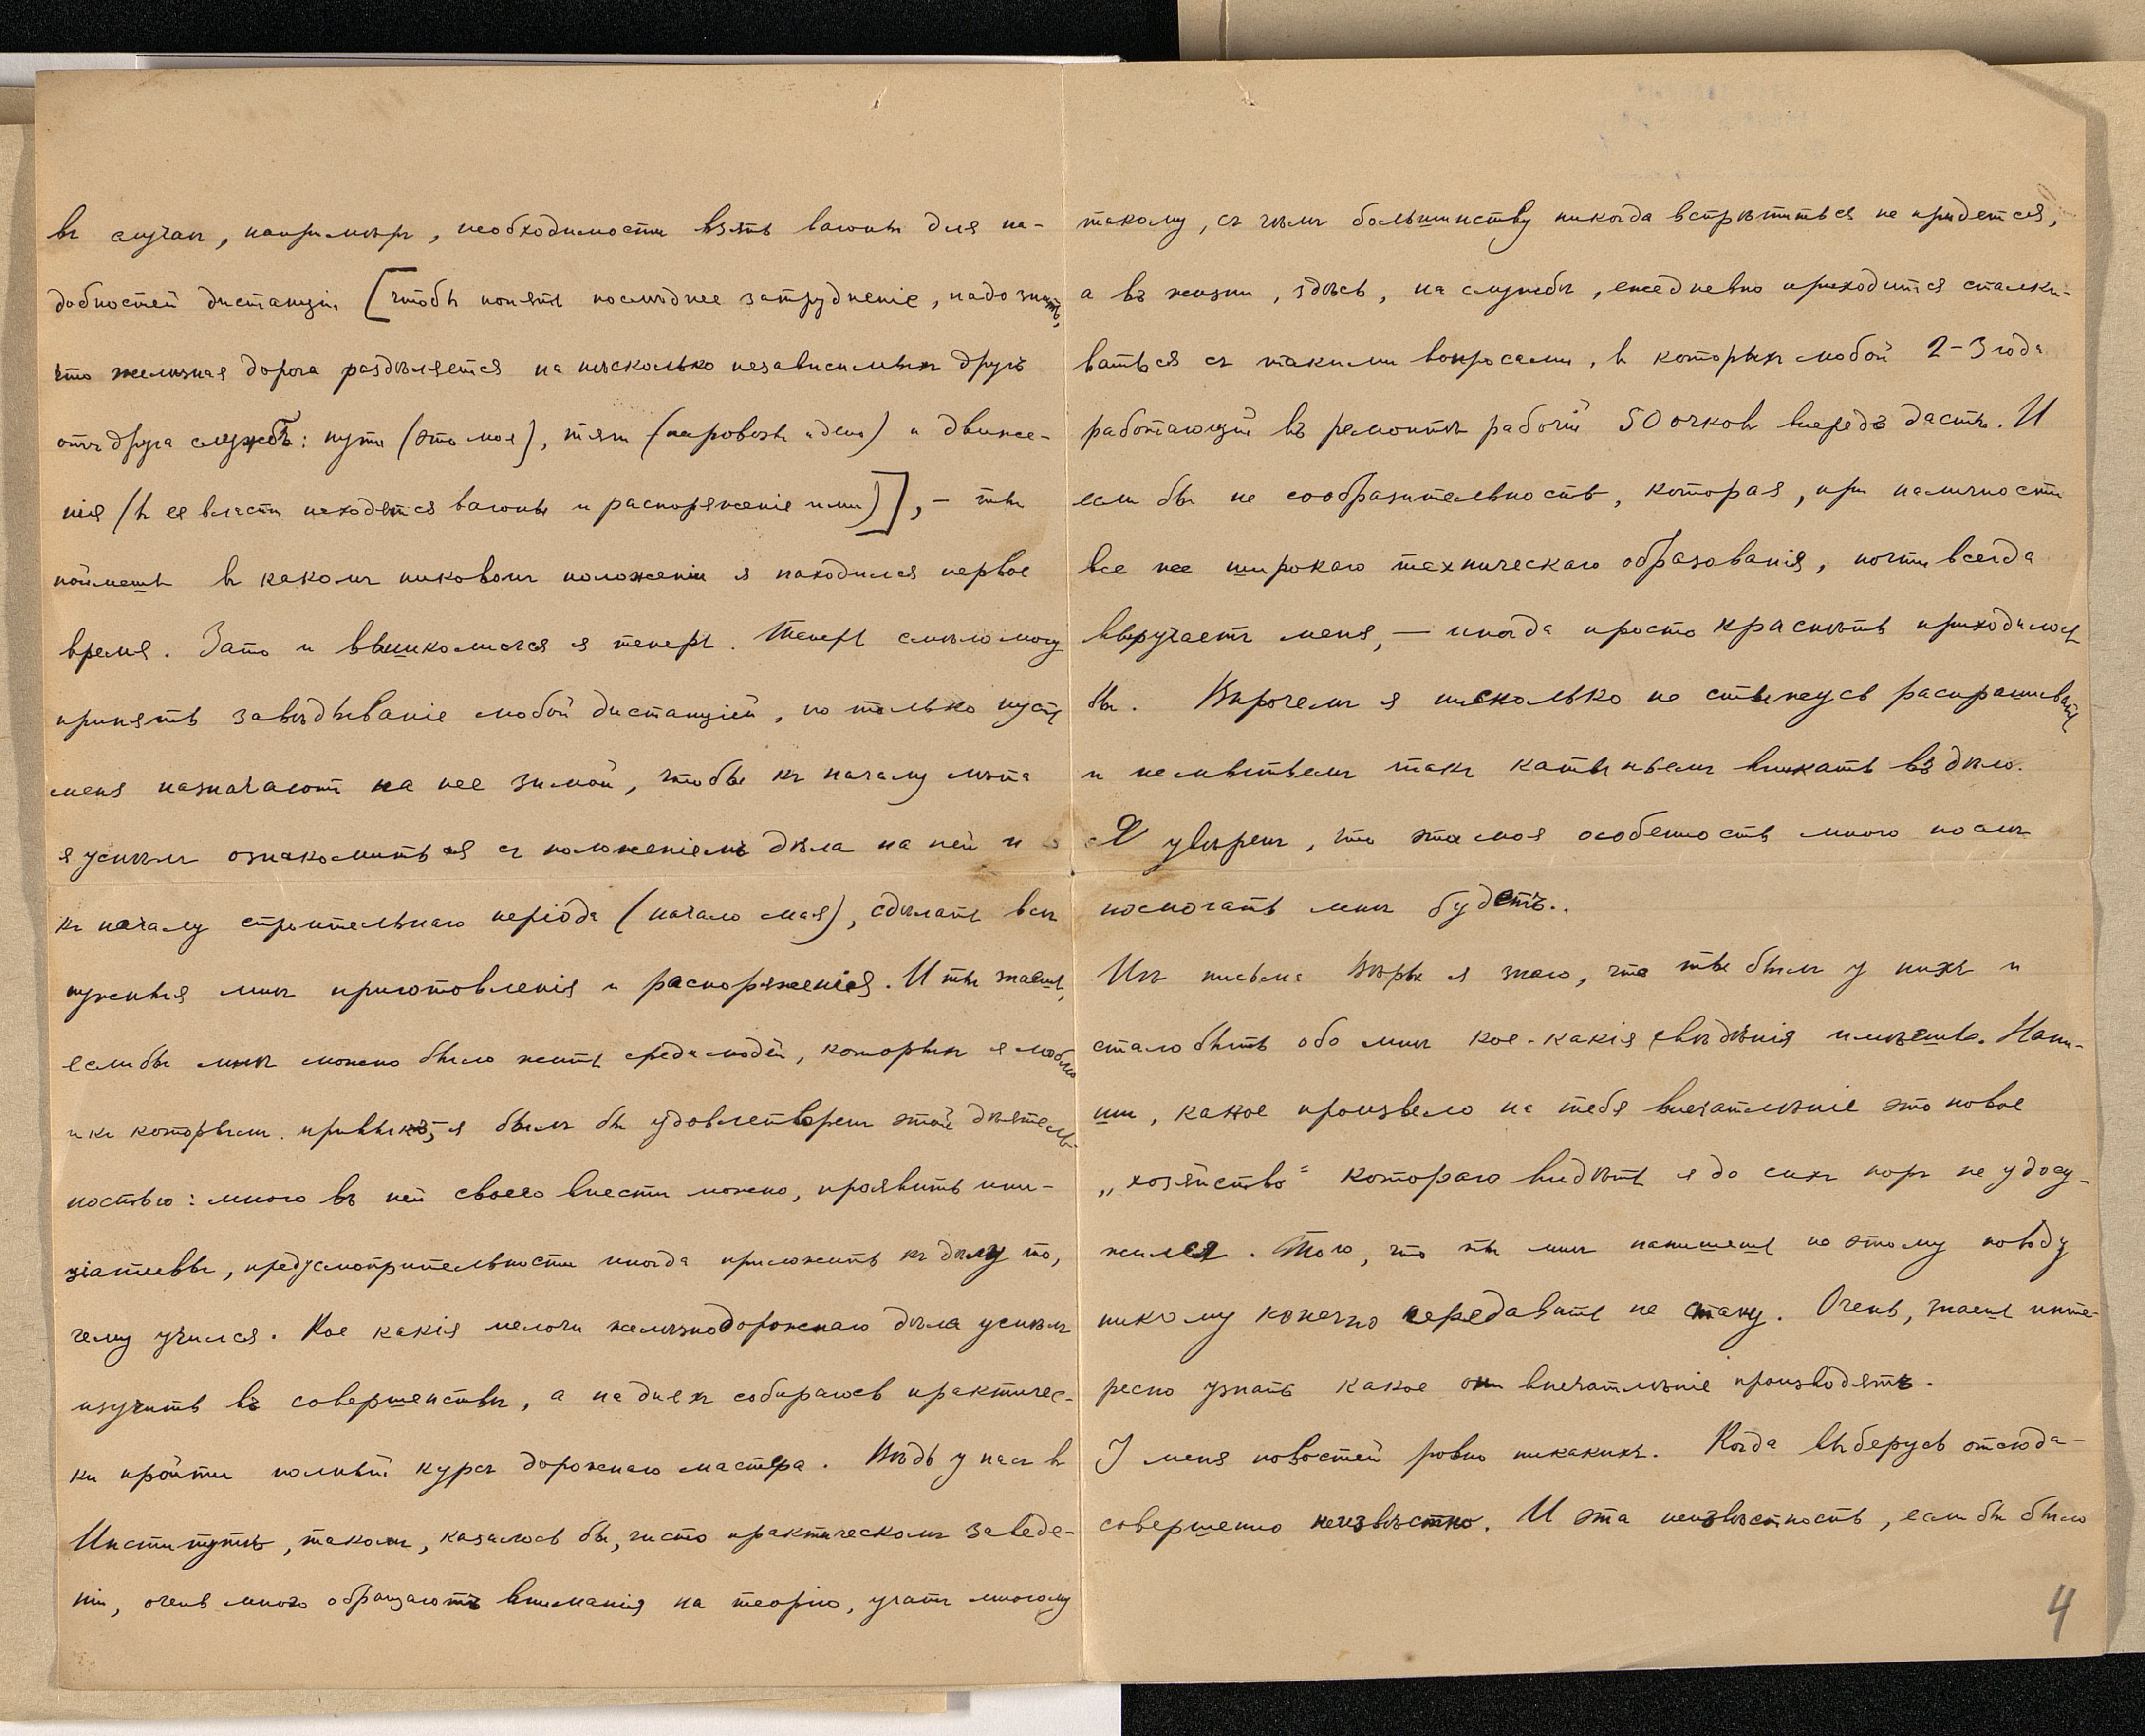 въ случаѣ, напримѣръ, необходимости взять вагоны для на-
добностей дистанціи [чтобы понять послѣднее затрудненіе, надо знать,
что желѣзная дорога раздѣляется на нѣсколько независимыхъ другъ
отъ друга службъ: пути (это моя), тяги (паровозы и депо) и движе-
нія (въ ея власти находятся вагоны и распоряженіе ими)], – ты
поймешь въ какомъ пиковомъ положеніи я находился первое
время. Зато и вышколился я теперь. Теперь смѣло могу
принять завѣдываніе любой дистанціей, но только пусть
меня назначаютъ на нее зимой, чтобы къ началу лѣта
я успѣлъ ознакомиться съ положеніемъ дѣла на ней и
къ началу строительнаго періода (начало мая), сдѣлать всѣ
нужныя мнѣ приготовленія и распоряженія. И ты знаешь,
если бы мнѣ можно было жить среди людей, которыхъ я люблю
и къ которымъ привыкъ, я былъ бы удовлетворенъ этой дѣятель-
ностью: много въ ней своего внести можно, проявить ини-
ціативы, предусмотрительности иногда приложить къ дѣлу то,
чему учился. Кое какія мелочи желѣзнодорожнаго дѣла успѣлъ
изучить въ совершенствѣ, а на дняхъ собираюсь практичес-
ки пройти полный курсъ дорожнаго мастера. Вѣдь у насъ въ
Институтѣ, такомъ, казалось бы, чисто практическомъ заведе-
ніи, очень много обращаютъ вниманія на теорію, учатъ многому
такому, съ чѣмъ большинству никогда встрѣтиться не придется,
а въ жизни, здѣсь, на службѣ, ежедневно приходится сталки-
ваться съ такими вопросами, въ которыхъ любой 2-3 года
работающій въ ремонтѣ рабочій 50 очковъ впередъ дастъ. И
если бы не сообразительность, которая, при наличности
все же широкаго техническаго образованія, почти всегда
выручаетъ меня, – иногда просто краснѣть приходилось
бы. Впрочемъ я нисколько не стѣсняюсь распрашивать
и вникать въ дѣло.
Я увѣренъ, что эта моя особенность много послѣ
помогать мнѣ будетъ..
Изъ письма Вѣры я знаю, что ты былъ у нихъ и
стало быть обо мнѣ кое-какія свѣдѣнія имѣешь. Напи-
ши, какое произвело на тебя впечатлѣніе это новое
„хозяйство" котораго видѣть я до сихъ поръ не удосу-
жился. Того, что ты мнѣ напишешь по этому поводу
никому конечно передавать не стану. Очень, знаешь инте-
ресно узнать какое они впечатлѣніе производятъ.
У меня новостей ровно никакихъ. Когда выберусь отсюда –
совершенно неизвѣстно. И эта неизвѣстность, если бы было
4